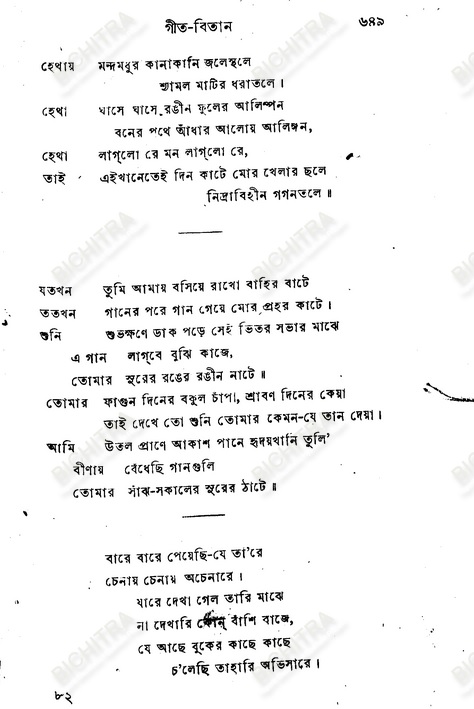 গীত-বিতান ৬৪৯
হেথায় মন্দমধুর কানাকানি জলেস্থলে
শ্যামল মাটির ধরাতলে।
হেথা ঘাসে ঘাসে রঙীন ফুলের আলিম্পন
বনের পথে আঁধার আলোয় আলিঙ্গন,
হেথা লাগ্‌লো রে মন লাগ্‌লো রে,
তাই এইখানেতেই দিন কাটে মোর খেলার ছলে
নিদ্রাবিহীন গগনতলে॥
যতখন তুমি আমায় বসিয়ে রাখো বাহির বাটে
ততখন গানের পরে গান গেয়ে মোর প্রহর কাটে।
শুনি শুভক্ষণে ডাক পড়ে সেই ভিতর সভার মাঝে
এ গান লাগ্‌বে বুঝি কাজে,
তোমার সুরের রঙের রঙীন নাটে॥
তোমার ফাগুন দিনের বকুল চাঁপা, শ্রাবণ দিনের কেয়া
তাই দেখে তো শুনি তোমার কেমন-যে তান দেয়া।
আমি উতল প্রাণে আকাশ পানে হৃদয়খানি তুলি'
বীণায় বেঁধেছি গানগুলি
তোমার সাঁঝ-সকালের সুরের ঠাটে॥
বারে বারে পেয়েছি-যে তা'রে
চেনায় চেনায় অচেনারে।
যারে দেখা গেল তারি মাঝে
না দেখারি কোন্ বাঁশি বাজে,
যে আছে বুকের কাছে কাছে
চ'লেছি তাহারি অভিসারে।
৮২
BICHITRA